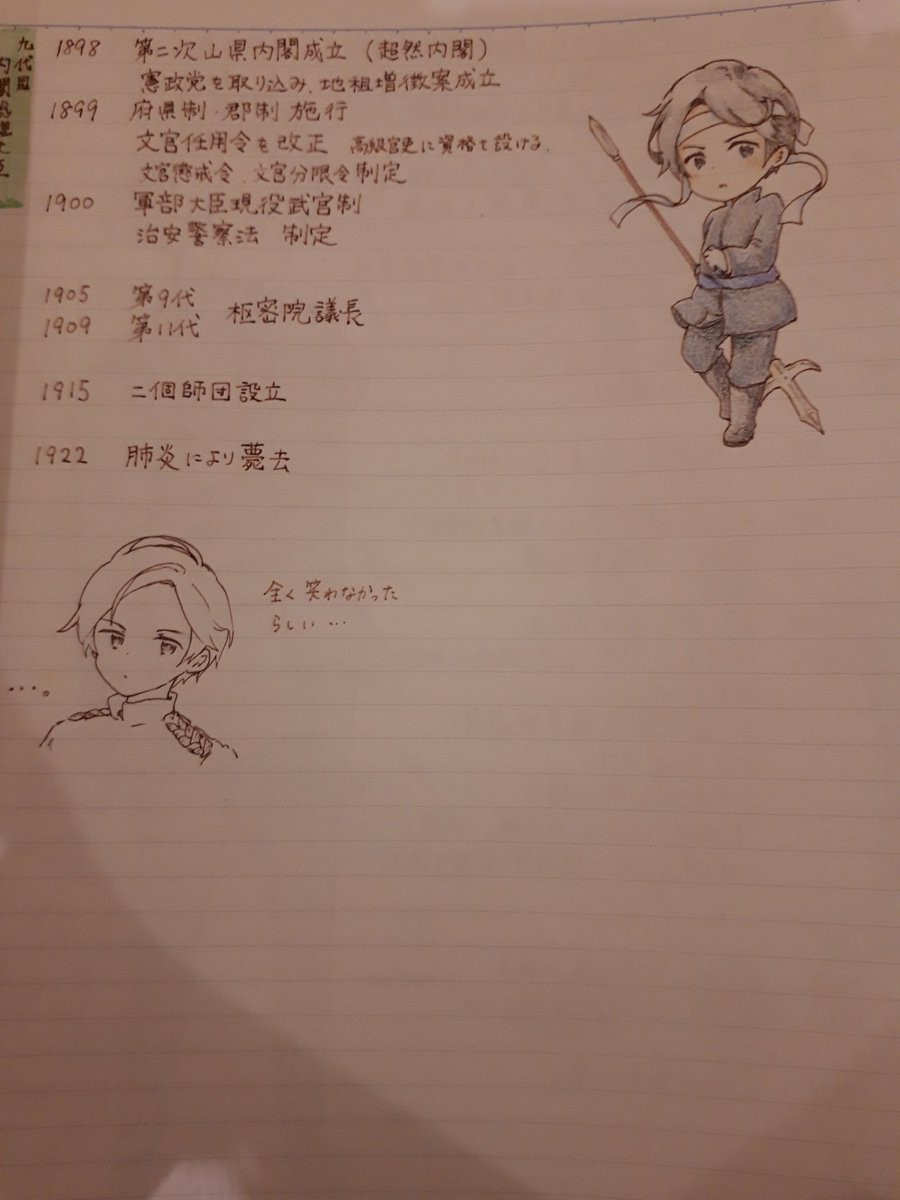 九代目
内閣総理大臣
1898 第二次山県内閣成立（超然内閣）
憲政党を取り込み、地租増徴案成立
1899 府県制・郡制 施行
文官任用令を改正 高級官吏に資格を設ける。
文官懲戒令、文官分限令制定
1900 軍部大臣現役武官制
治安警察法 制定
1905 第9代
枢密院議長
1909 第11代
1915 二個師団設立
1922 肺炎により薨去
全く笑わなかった
らしい…
…。